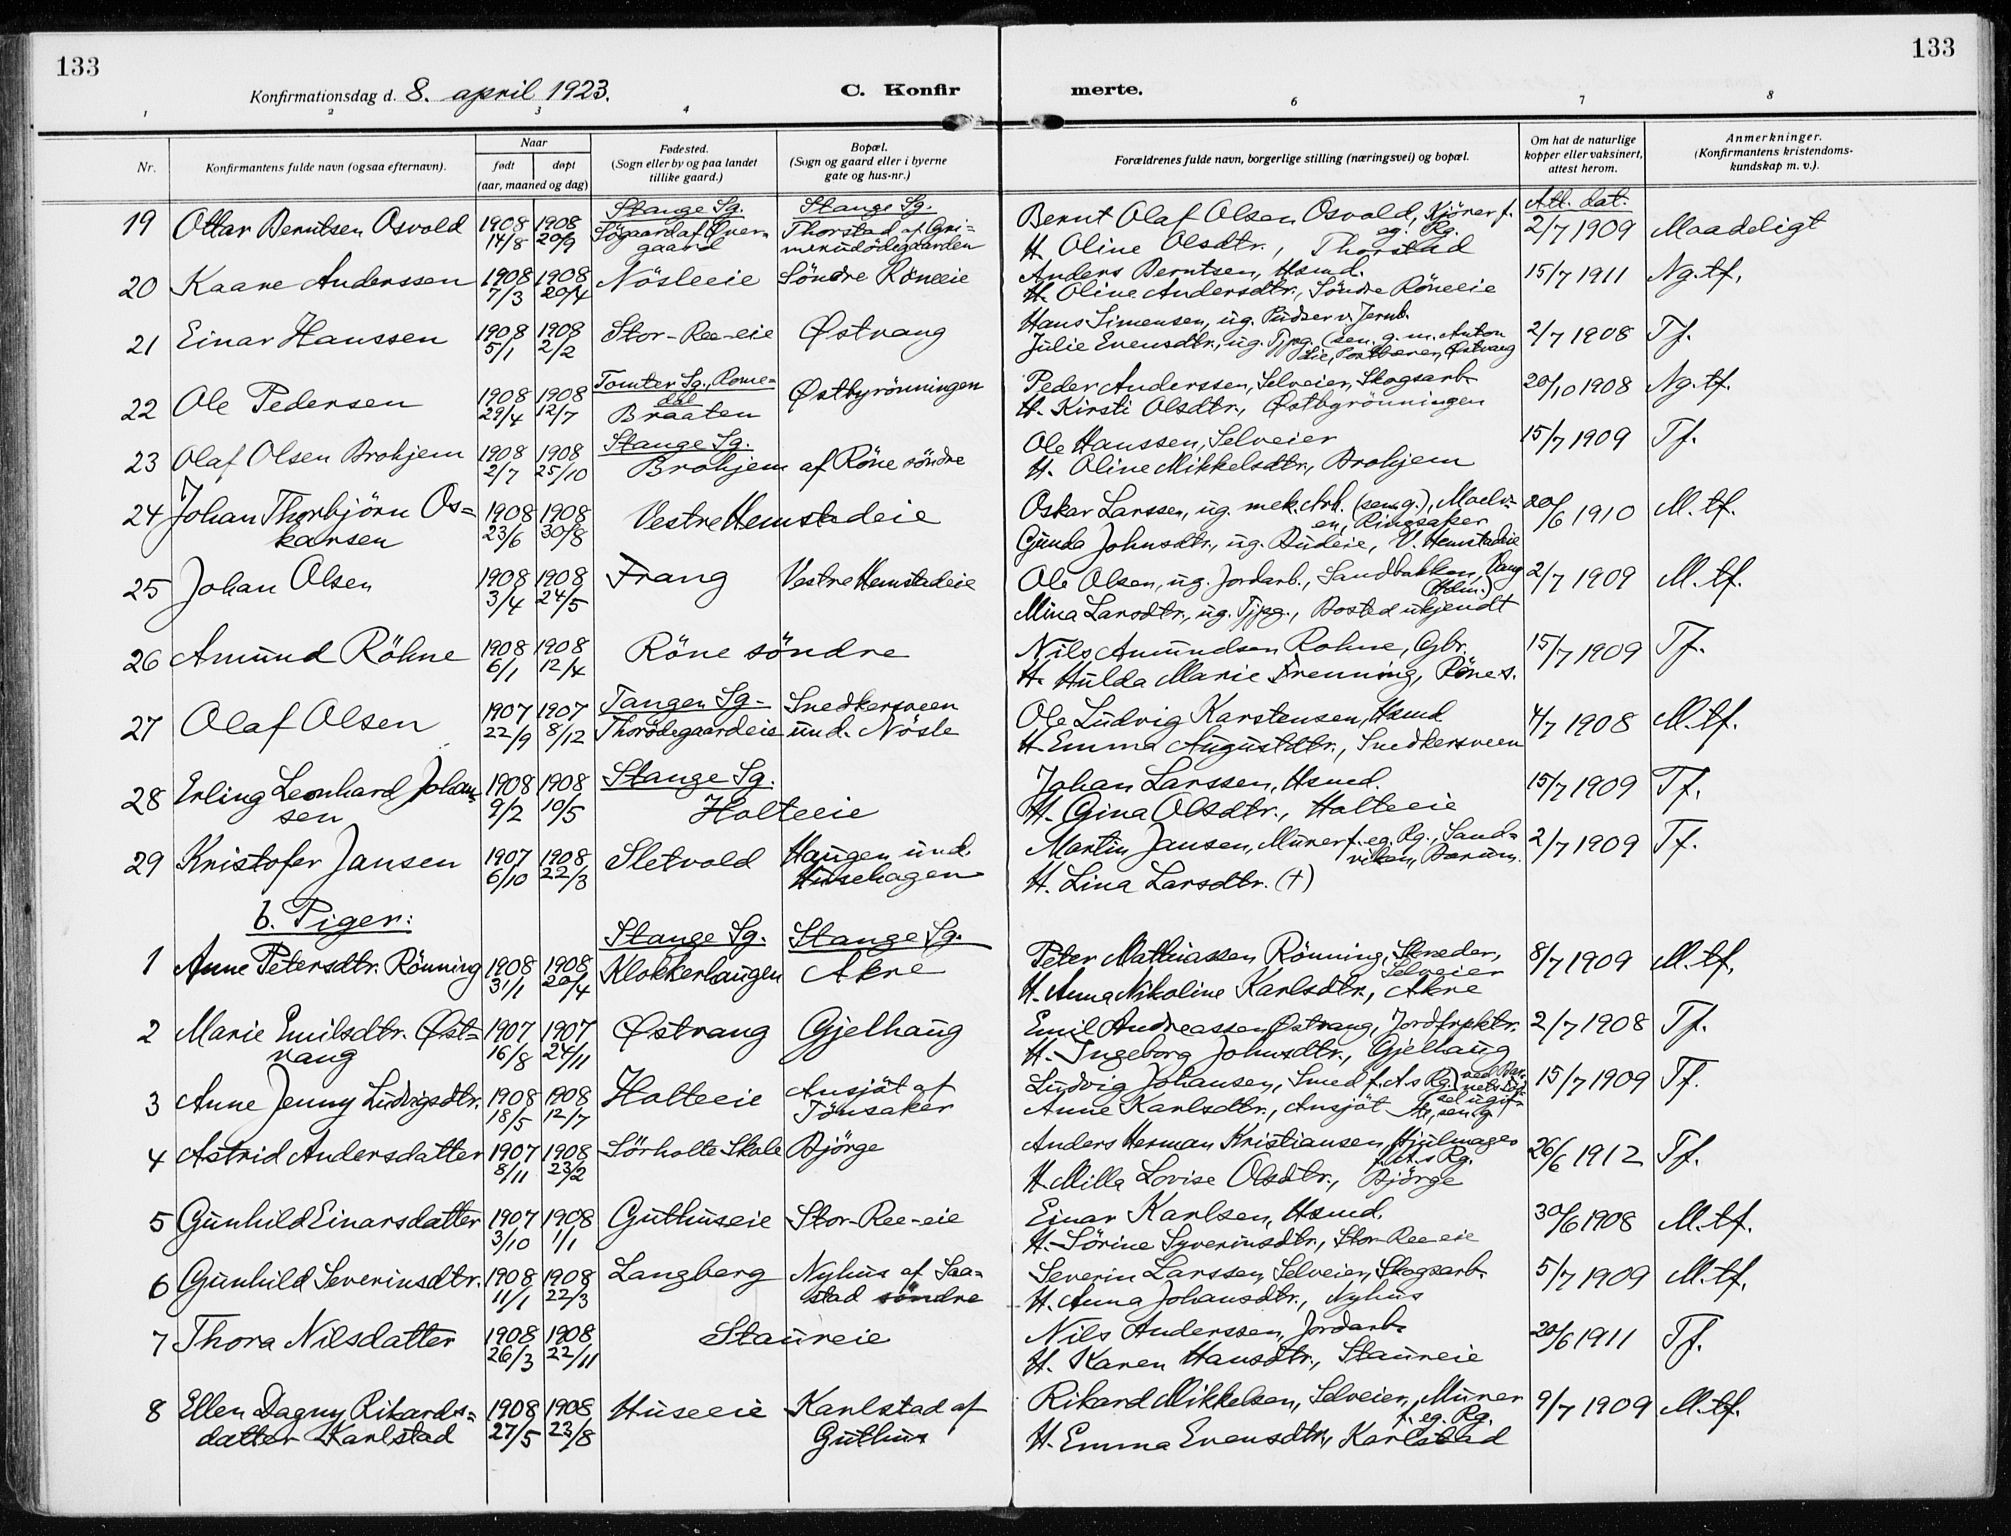 133
133
Konfirmationsdag d. 8. april 1923.
C. Konfir
merte.
1 2 3 4 6 7 8
Nr.
Konfirmantens fulde navn (ogsaa efternavn).
Naar
født
døpt
(aar, maaned og dag)
Fødested.
(Sogn eller by og paa landet
tillike gaard.)
Bopæl.
(Sogn og gaard eller i byerne
gate og hus-nr.)
Forældrenes fulde navn, borgerlige stilling (næringsvei) og bopæl.
Om hat de naturlige
kopper eller vaksinert,
attest herom.
Anmerkninger.
(Konfirmantens kristendoms-
kundskap m. v.).
Stange Sg. Stange Sg. Att. dat.
19 Ottar Berntsen Osvold 1908 14/8 1908 20/9 Thorstad af Bernt Olaf Olsen Osvold, Kjörer f. eg. Rg. 2/7 1909 Maadeligt
H. Oline Olsdtr., Thorstad
20 Kaare Anderssen 1908 7/3 1908 20/4 Nösleeie Söndre Röneeie Anders Berntsen, Hsmd. 15/7 1911 Ng. tf.
H. Oline Andersdtr., Söndre Röneeie
21 Einar Hanssen 1908 5/1 1908 2/2 Stor-Ree-eie Østvang Hans Simensen, ug. Pudser v. Jernb. 2/7 1908 Tf.
Julie Evensdtr., ug. Tjpg. (sen. g. m. Anton
Lie, Postbærer, Østvang
22 Ole Pedersen 1908 29/4 1908 12/7 Tomter Sg., Rome-
dal
Braaten Østbyrönningen Peder Anderssen, Selveier, Skogsarb. 20/10 1908 Ng. tf.
H. Kirsti Olsdtr., Østbyrönningen
23 Olaf Olsen Brohjem 1908 2/7 1908 25/10 Stange Sg.
Brohjem af Röne söndre Ole Hanssen, Selveier 15/7 1909 Tf.
H. Oline Mikkelsdtr., Brohjem
24 Johan Thorbjörn Os-
karsen 1908 23/6 1908 30/8 Vestre Hemstadeie Oskar Larssen, ug. mek. Arb. (sen. g.), Moelv-
en, Ringsaker 20/6 1910 M. tf.
Gunda Johnsdtr., ug. Budeie, V. Hemstadeie
25 Johan Olsen 1908 3/4 1908 24/5 Frang Vestre Hemstadeie Ole Olsen, ug. Jordarb., Sandbakken, Vang 2/7 1909 M. tf.
Mina Larsdtr., ug. Tjpg., Bosted ukjendt
26 Amund Röhne 1908 6/1 1908 12/4 Röne söndre Nils Amundsen Rohne, Gbr. 15/7 1909 Tf.
H. Hulda Marie Frenning, Röne s.
27 Olaf Olsen 1907 22/9 1907 8/12 Tangen Sg.
Thorödegaardeie Snedkersveen
und. Nösle Ole Ludvig Karstensen, Hsmd. 4/7 1908 M. tf.
H. Emma Augustdtr., Snedkersveen
28 Erling Leonhard Johan-
sen 1908 9/2 1908 10/5 Stange Sg.
Holteeie Johan Larssen, Hsmd. 15/7 1909 Tf.
H. Gina Olsdtr., Holteeie
29 Kristofer Jansen 1907 6/10 1908 22/3 Sletvold Haugen und.
Husehagen Martin Jansen, Murer f. eg. Rg., Sand-
viken, Bærum. 2/7 1909 Tf.
H. Lina Larsdtr. (+)
b. Piger:
Stange Sg. Stange Sg.
1 Anne Petersdtr. Rönning 1908 31/1 1908 20/4 Klokkerhaugen Akre Peter Mathiassen Rönning, Skreder,
Selveier 8/7 1909 M. tf.
H. Anna Nikoline Karlsdtr., Akre
2 Marie Emilsdtr. Øst-
vang 1907 16/8 1907 24/11 Østvang Gjelhaug Emil Andreassen Østvang, Jordfrpktr. 2/7 1908 Tf.
H. Ingeborg Johnsdtr., Gjelhaug
3 Anne Jenny Ludvigsdtr. 1908 18/5 1908 12/7 Holteeie Ansjöt af
Tönsaker Ludvig Johansen, Smed f. A.s Rg. 15/7 1909 Tf.
Anne Karlsdtr., Ansjöt
4 Astrid Andersdatter 1907 8/11 1908 23/2 Sörholte Skole Björge Anders Herman Kristiansen, Hjulmager
f. A.s Rg. 26/6 1912 Tf.
H. Milla Lovise Olsdtr., Björge
5 Gunhild Einarsdatter 1907 3/10 1908 1/1 Guthuseie Stor-Ree-eie Einar Karlsen, Hsmd. 30/6 1908 M. tf.
H. Sörine Syverinsdtr., Stor-Ree-eie
6 Gunhild Severinsdtr. 1908 11/1 1908 22/3 Langberg Nyhus af Saa-
stad söndre Severin Larssen, Selveier, Skogsarb. 5/7 1909 M. tf.
H. Anna Johansdtr., Nyhus
7 Thora Nilsdatter 1908 26/3 1908 22/11 Staureie Nils Anderssen, Jordarb. 20/6 1911 Tf.
H. Karen Hansdtr., Staureie
8 Ellen Dagny Rikards-
datter Karlstad 1908 27/5 1908 23/8 Huseeie Karlstad af
Guthus Rikard Mikkelsen, Selveier, Murer
f. eg. Rg. 9/7 1909 M. tf.
H. Emma Evensdtr., Karlstad